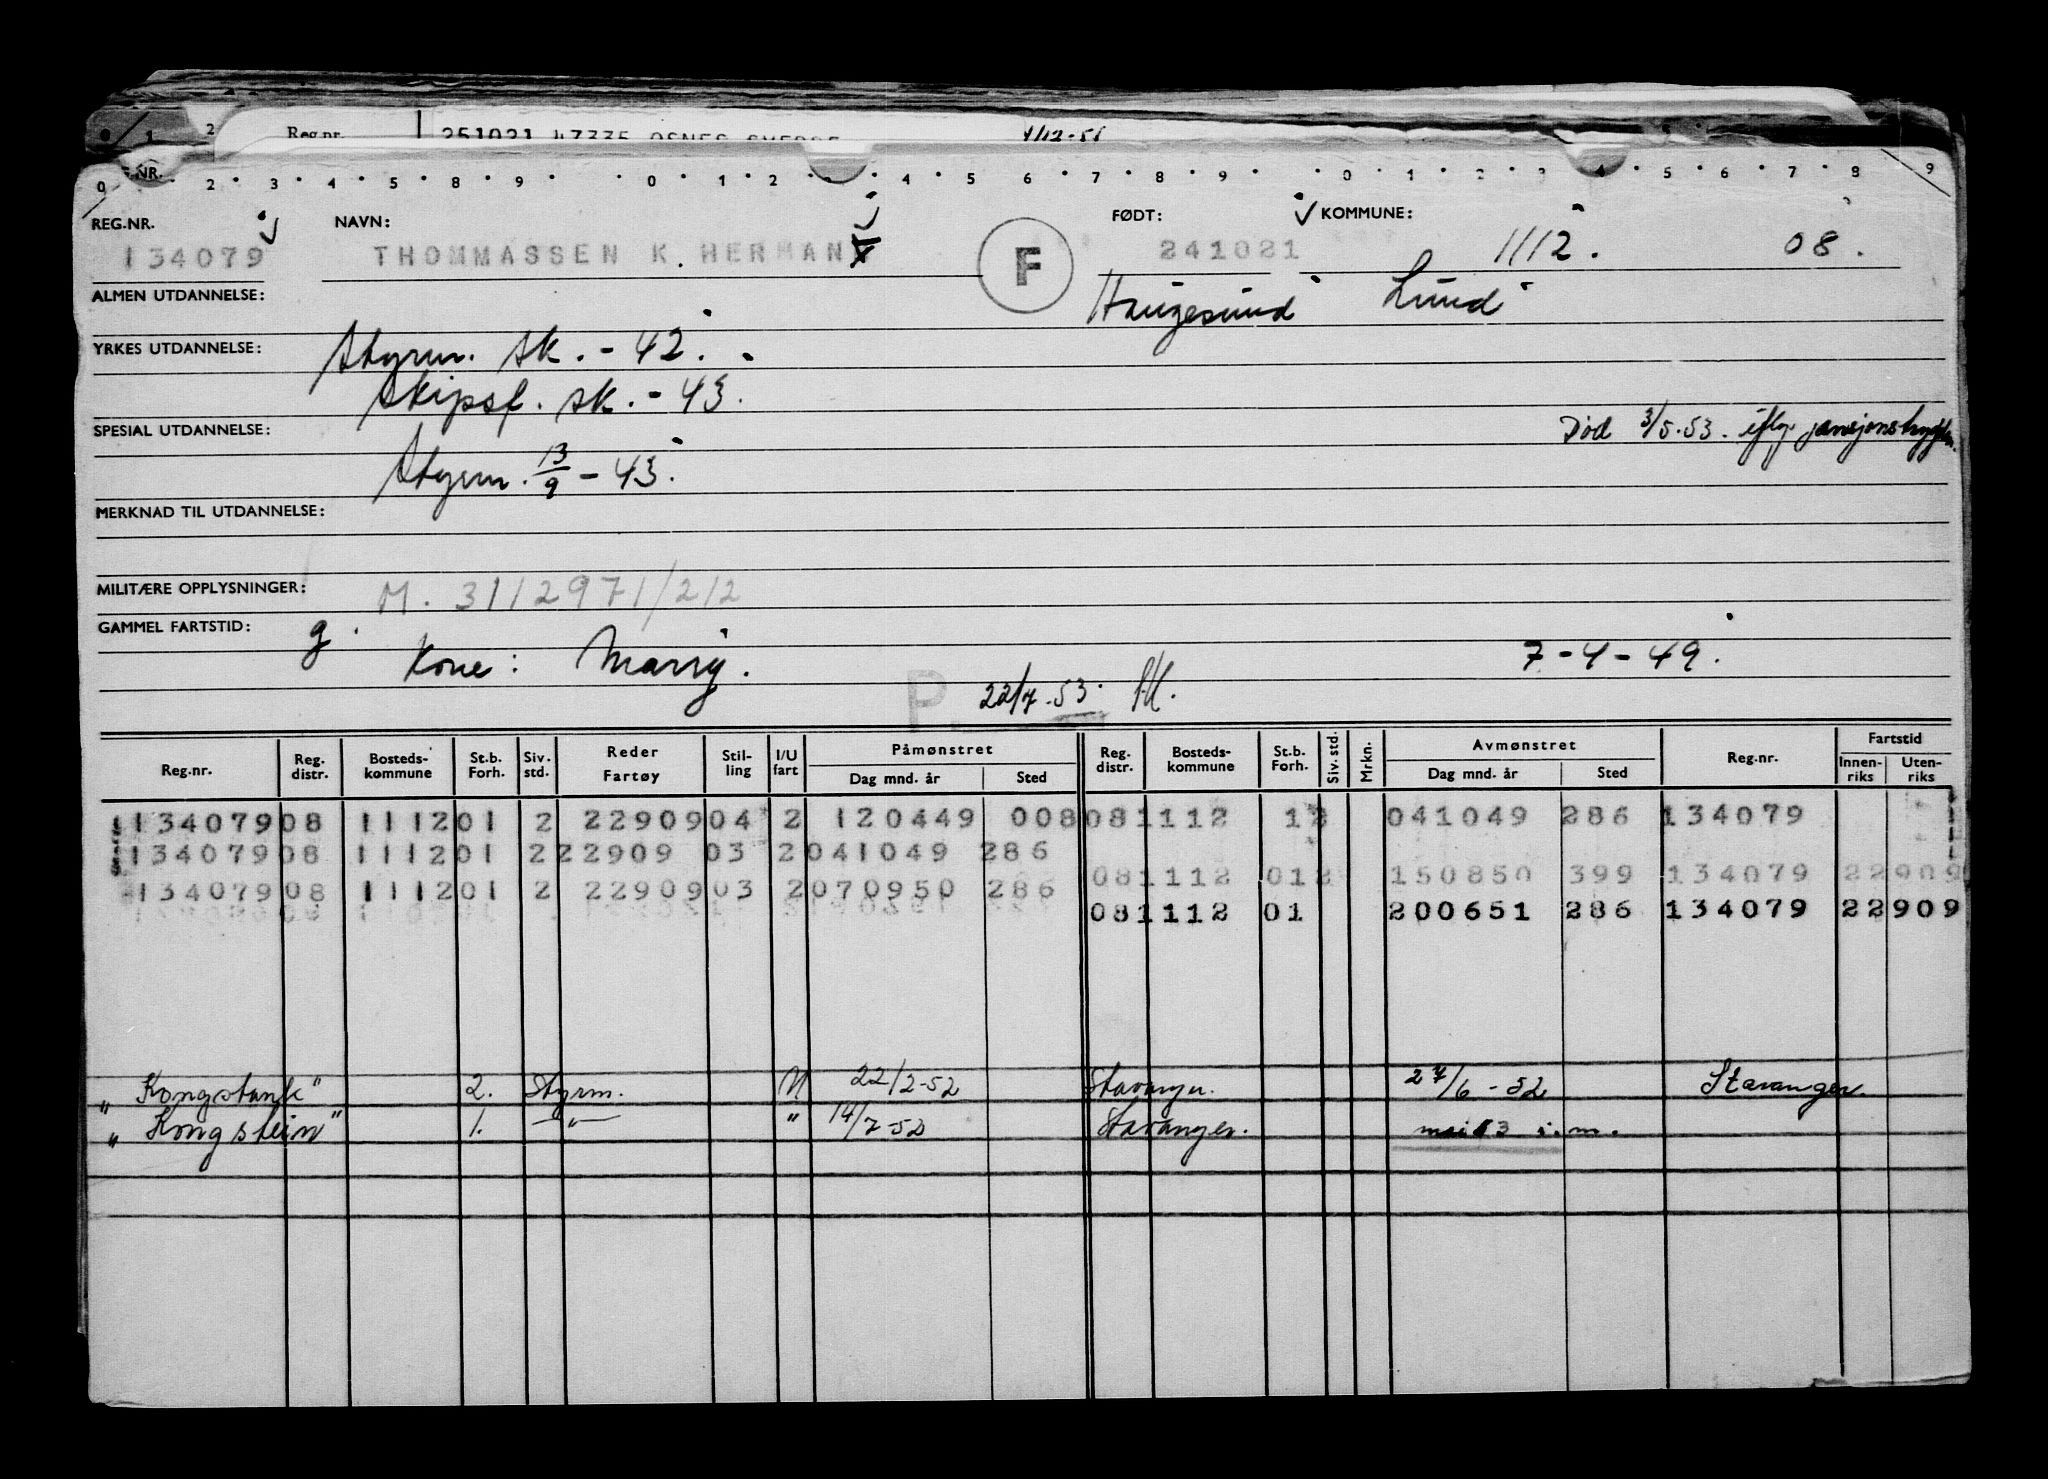 0 1 2 Reg.nr. 251021 47335 OSNES SVERRE 1/12-51
G.NR.
0 2 3 4 5 8 9 0 1 2 4 5 6 7 8 9 0 1 2 3 4 5 6 7 8 9
REG.NR. NAVN: FØDT: KOMMUNE:
134079 THOMMASSEN K. HERMAN F 241021 1112. 08.
ALMEN UTDANNELSE: Haugesund Lund
YRKES UTDANNELSE: Styrm. sk. - 42.
Skipsf. sk. - 43.
SPESIAL UTDANNELSE: Død 3/5.53. iflg.
Styrm. 13/9 - 43.
MERKNAD TIL UTDANNELSE:
MILITÆRE OPPLYSNINGER: M. 3112971/212
GAMMEL FARTSTID: g.
Kone: Marry. 7-4-49.
P. 22/7.53.
Reg.nr. Reg. distr. Bosteds-kommune St.b. Forh. Siv. std. Reder Fartøy Stil-ling I/U fart Påmønstret Dag mnd. år Sted Reg. distr. Bosteds-kommune St.b. Forh. Siv. std. Mrkn. Avmønstret Dag mnd. år Sted Reg.nr. Fartstid Innen-riks Uten-riks
134079 08 1112 01 2 22909 04 2 120449 008 08 1112 12 041049 286 134079
134079 08 1112 01 2 22909 03 2 041049 286
08 1112 012 150850 399 134079 22909
134079 08 1112 01 2 22909 03 2 070950 286
08 1112 01 200651 286 134079 22909
"Kongstank" 2. Styrm. U 22/2-52 Stavanger. 27/6-52 Stavanger.
"Kongstein" 1. —"— " 14/7-52 Stavanger. mai 53 s.m.